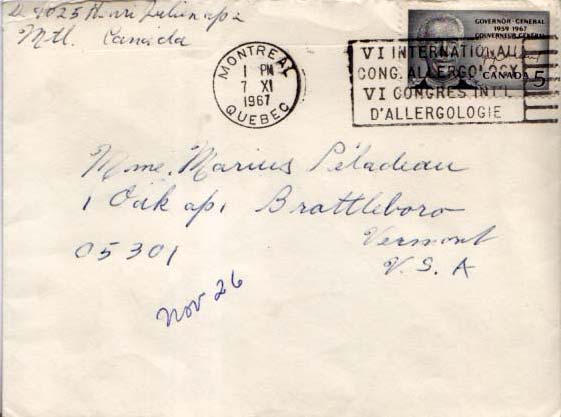 4025 Henri Julien ap 2
Mtl. Canada
MONTREAL
1 PM
7 XI
1967
QUEBEC
GOVERNOR-GENERAL
1959 1967
GOUVERNEUR-GENERAL
CANADA 5
VI INTERNATIONAL
CONG. ALLERGOLOGY
VI CONGRES INT'L
D'ALLERGOLOGIE
Mme. Marius Péladeau
1 Oak ap 1 Brattleboro
05301 Vermont
U.S.A
Nov 26